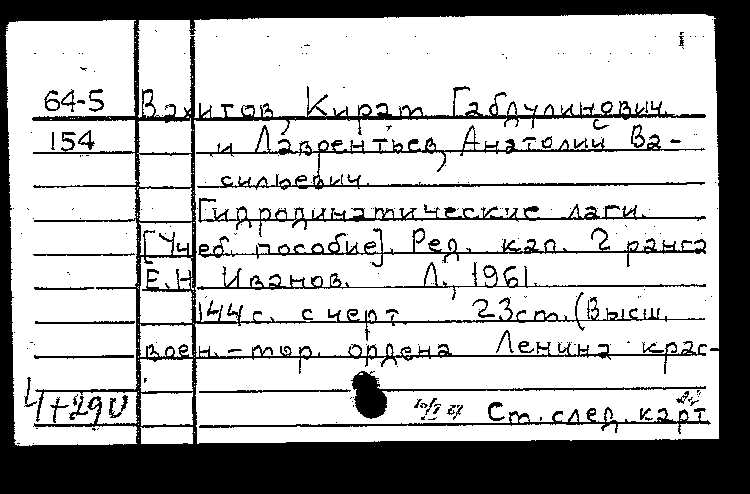 64-5 Вахитов, Кират Габдулинович.
154 и Лаврентьев, Анатолий Ва-
сильевич.
Гидродинатические лаги.
[Учеб. пособие]. Ред. кап. 2 ранга
Е.Н. Иванов. Л., 1961.
144 с. с черт. 23 ст. (Высш.
воен.-тор. ордена Ленина крас-
Ст. след. карт